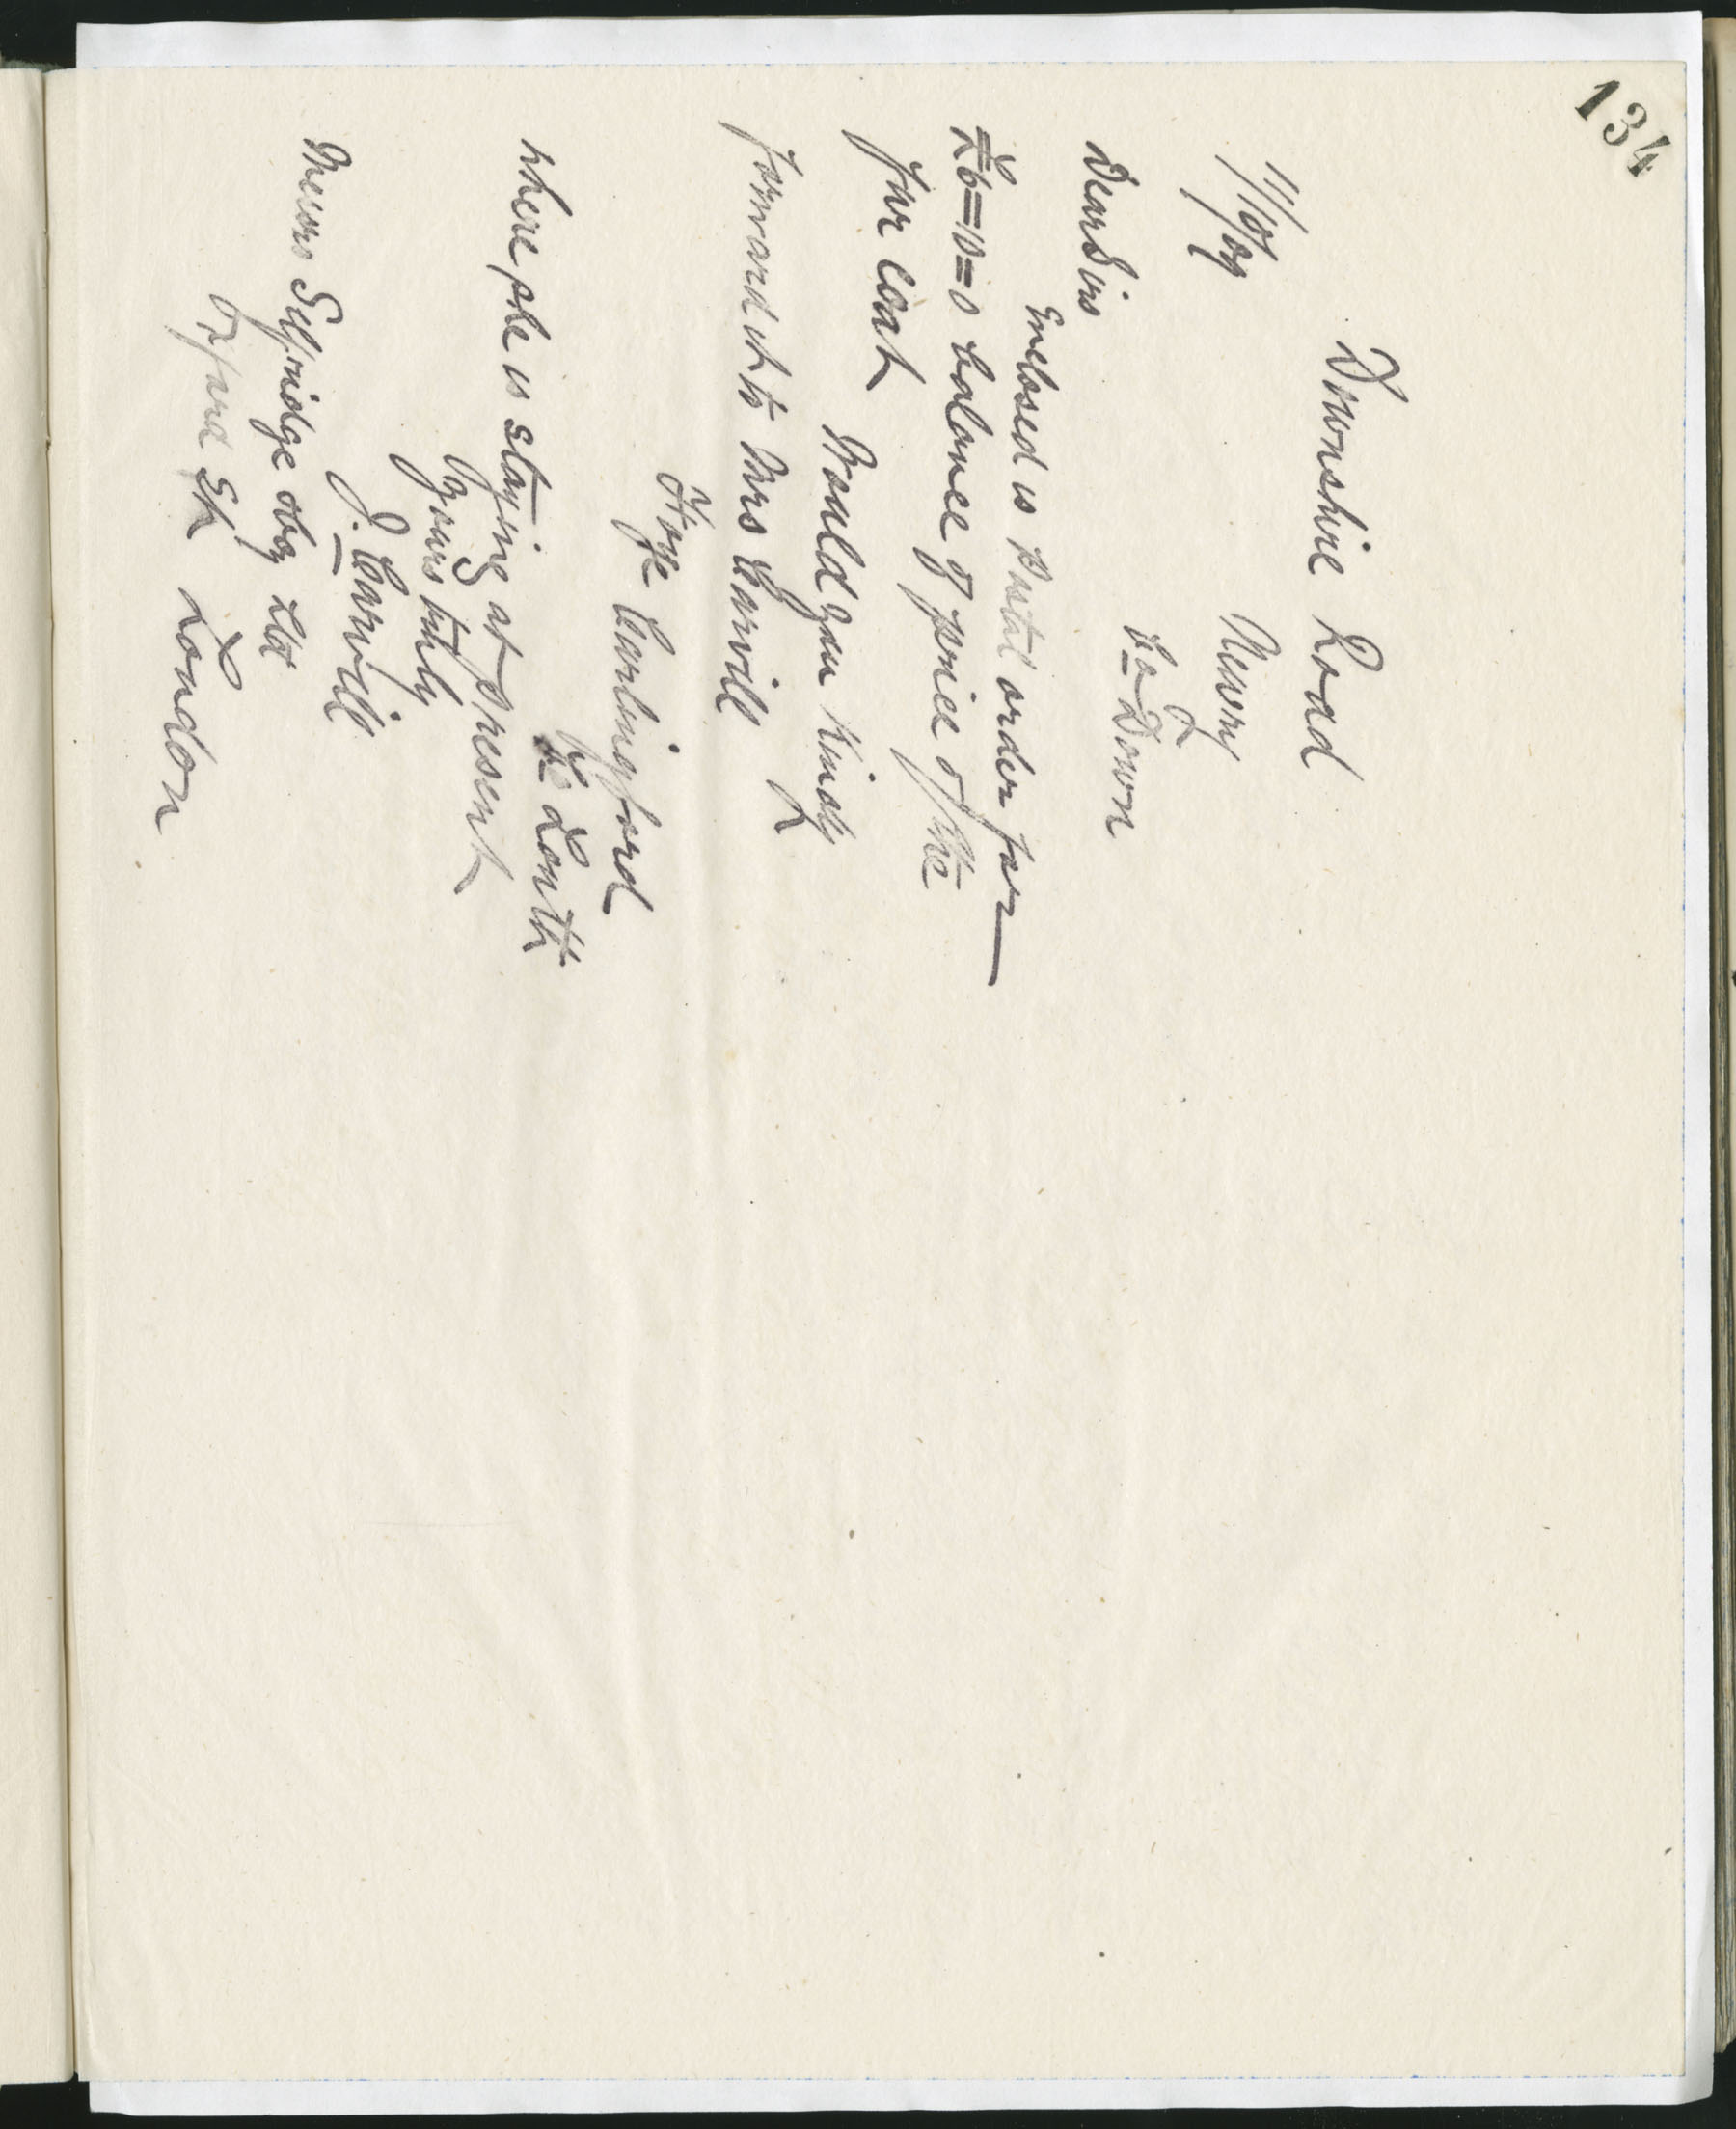 134
Downshire Road
Newry
Co Down
11/5/09
Dear Sirs
Enclosed is Postal order for
£6=0=0 balance of price of the
fur coat
Would you kindly
forward it to Mrs Carvill
Carlingford
Co Louth
where she is staying at present
Yours truly
J. Carvill
Messrs Selfridge & Coy Ltd
Oxford St London